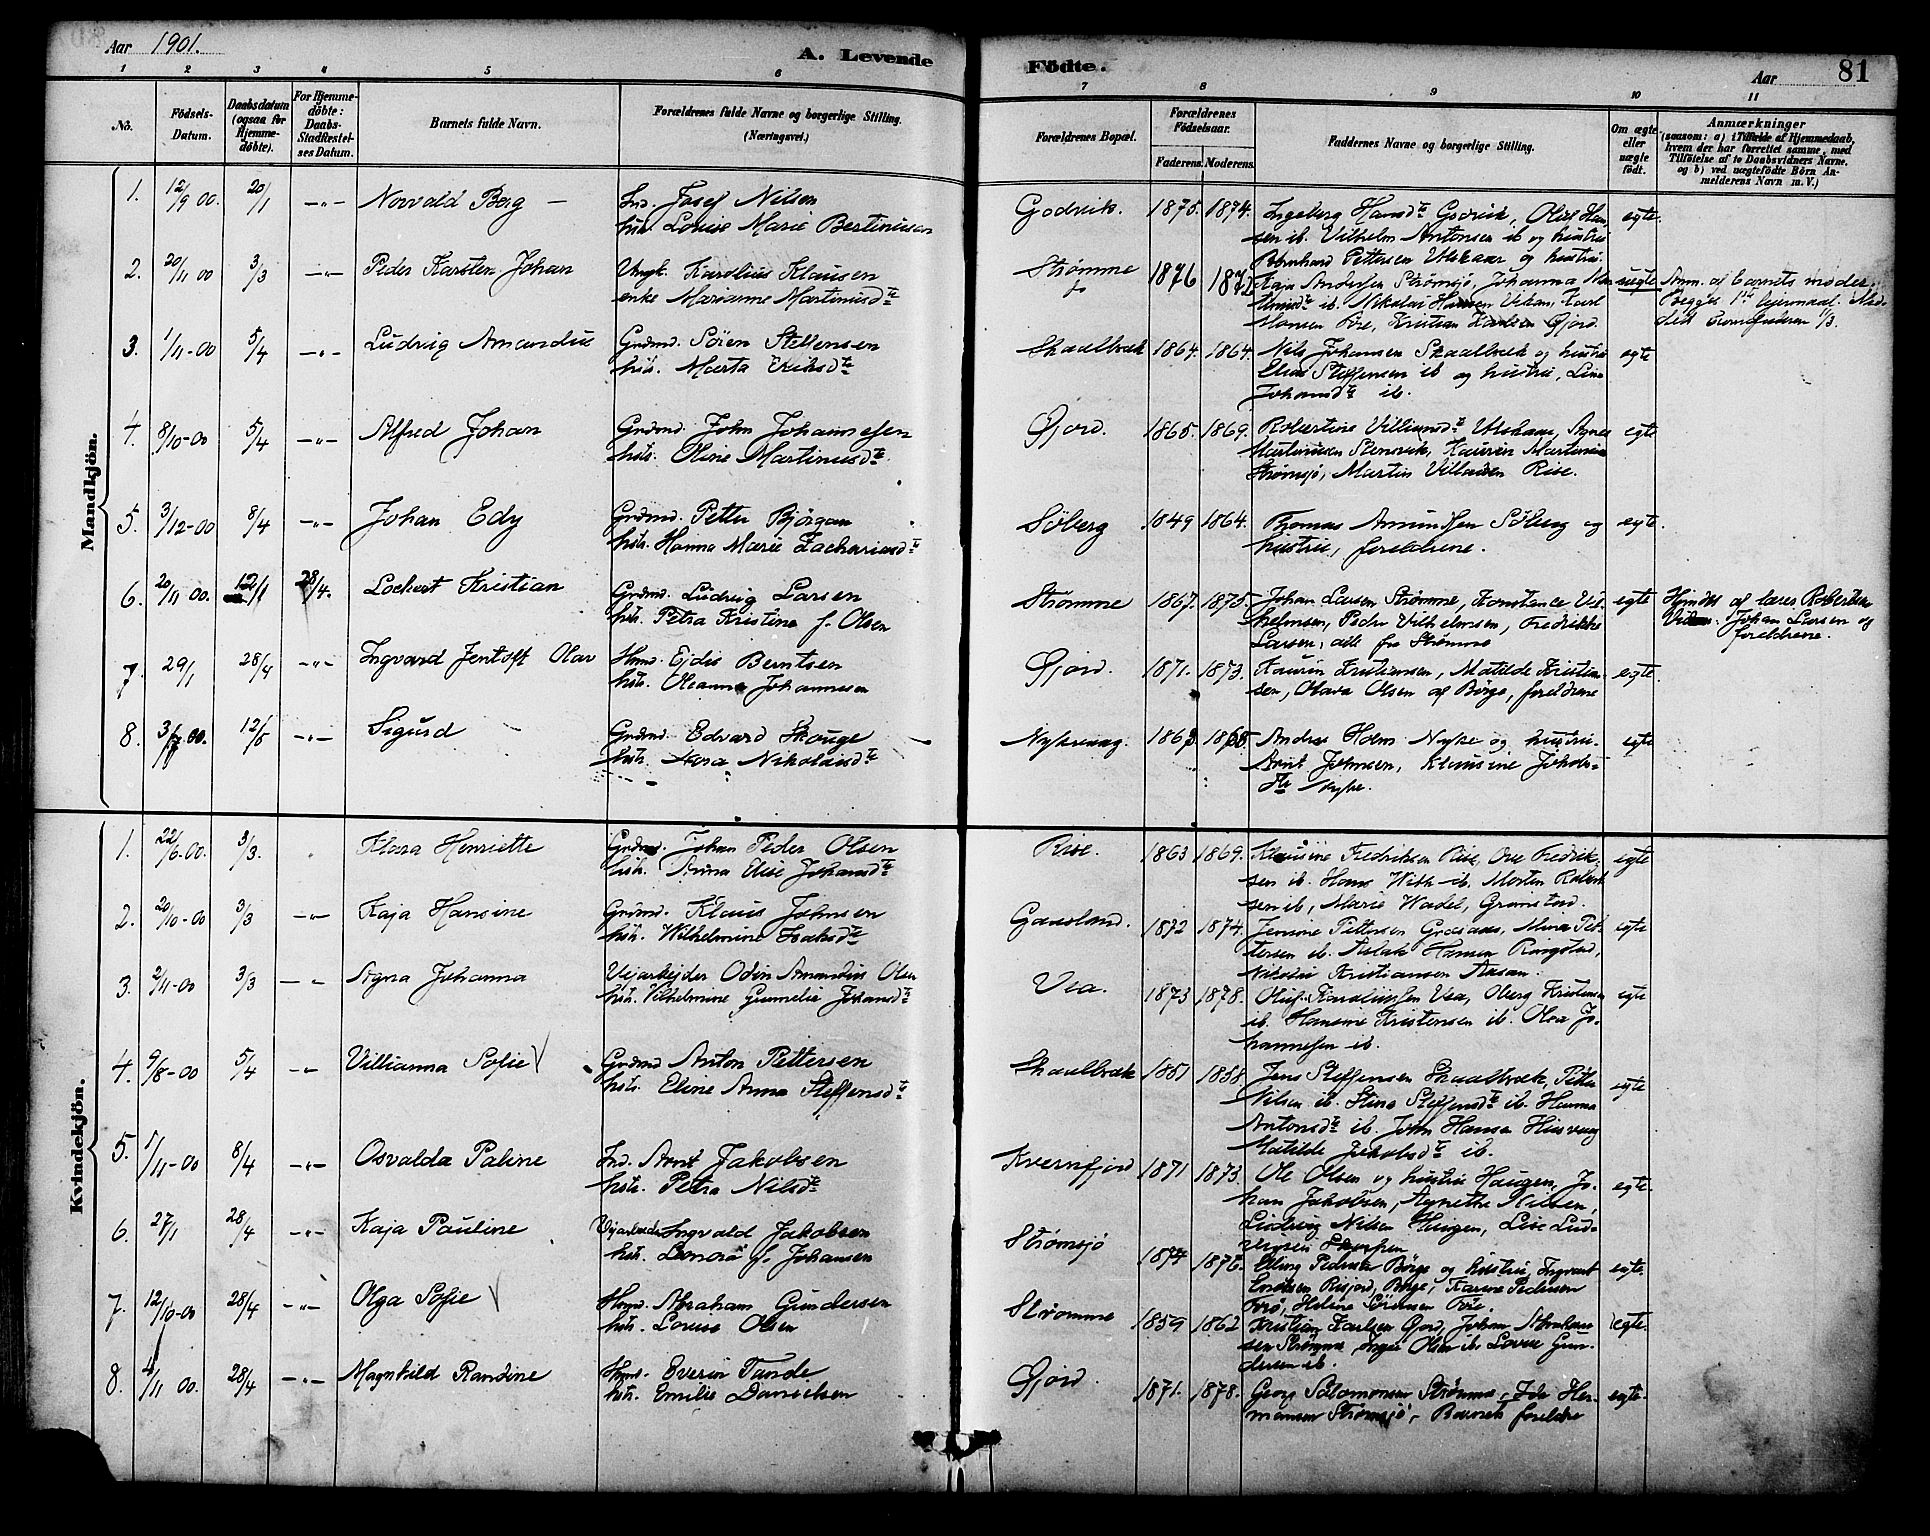 Aar 1901.
A. Levende
Födte.
Aar
81
1 2 3 4 5 6 7 8 9 10 11
No.
Födsels-Datum.
Daabsdatum (ogsaa for Hjemme-döbte).
For Hjemme-döbte: Daabs-Stadfæstel-ses Datum.
Barnets fulde Navn.
Forældrenes fulde Navne og borgerlige Stilling. (Næringsvei.)
Forældrenes Bopæl.
Forældrenes Födselsaar.
Faderens. Moderens.
Faddernes Navne og borgerlige Stilling.
Om ægte eller uægte födt.
Anmærkninger
(saasom: a) i Tilfælde af Hjemmedaab, hvem der har forrettet samme, med Tilföielse af to Daabsvidners Navne, og b) ved uægtefödte Börn An-melderens Navn m. V.)
Mandkjön.
1. 12/9 00 20/1 -"- Norvald Berg - Ind. Josef Nilsen
hstr. Louise Marie Bertinusen
Godvik. 1875. 1874. Ingeborg Hansdtr Godvik, Oluf Han-
sen ib. Vilhelm Antonsen ib og hustru egte.
2. 20/11 00 3/3 -"- Peder Karsten Johan Ungk. Karolius Klausen
enke Marianne Martinusdtr
Strømme 1876 1872
Bernhard Pettersen Utskaar og hustru
Kaja Andersen Strømsjø, Johanna
ib. Nikolai Hansen
Hansen Føre, Kristian Karlsen Gjord.
uegte Anm. af barnets moder.
Begges 1ste leiermaal.
3. 1/11-00 5/4 -"- Ludvig Amandus Grdmd. Sören Steffensen
hstr. Marta Eriksdtr
Skaalbræk 1864. 1864. Nils Johansen Skaalbræk og hustru
Elias Steffensen ib og hustru, Lina
Johansdtr ib. egte
4. 8/10-00 5/4 -"- Alfred Johan Grdmd. John Johannesen
hstr. Oline Martinusdtr
Gjord. 1865. 1869. Robertine Villumsdtr Utskaar, Agnes
Martinusen Stensvik, Laurin Martinusen
Strømsjø, Martin Villadsen Rise. egte
5. 3/12-00 8/4 -"- Johan Edy Grdmd. Petter Bjørgan
hstr. Hanna Marie Zachariasdtr
Søberg 1849 1864. Thomas Amundsen Søberg og
hustru, foreldrene. egte.
6. 20/11 00. 12/1 28/4. Lockert Kristian Grdmd. Ludvig Larsen
hstr. Petra Kristine f. Olsen
Strømme 1867. 1875. Johan Larsen Strømme, Konstance Vil-
helmsen, Peder Vilhelmsen, Fredrikke
Larsen, alle fra Strømme egte Hjmdbt af lærer Robertsen
Vidner: Johan Larsen og
foreldrene.
7. 29/1 28/4 -"- Ingvard Jentoft Olav Hmd. Ejdis Berntsen
hstr. Oleanna Johannesen
Gjord. 1871. 1873. Laurin Kristiansen, Matilde Kristian-
sen, Olava Olsen af Børge, foreldrene egte.
8. 12/5 -"- Sigurd Grdmd. Edvard Skouge
hstr. Nikolaisdtr
Nykvaag. Andreas Holm Nyke og hustru.
Arnt Johnsen, Klausine Jakobs-
dtr Nyke. egte
Kvindekjön.
1. 22/6.00. 3/3. " Klara Henriette Grdmd. Johan Peder Olsen
hstr. Anna Elise Johansdtr
Rise. 1863 1869. Klausine Fredriksen Rise, Ove Fredrik-
sen ib. Hans With ib. Morten Robert-
sen ib, Marie Wadel, Grønstad. egte
2. 20/10-00 3/3 -"- Kaja Hansine Grdmd. Klaus Johnsen
hstr. Wilhelmine Isaksdtr
Gaasland. 1872 1874. Pettersen Minna Pet-
tersen ib. Aslak Hansen Ringstad,
Nikolai Kristiansen Aasan. egte
3. 2/11-00 3/3 -"- Agna Johanna Vejarbejder Odin Amandus Olsen
hstr. Vilhelmine Gunnelie Johansdtr
Vea. 1873 1878. Oluf Karoliussen Vea, Oberg Kristensen
ib. Hansine Kristensen ib. Olea Jo-
hannesen ib. egte
4. 9/8-00 5/4 -"- Villianna Sofie Grdmd Anton Pettersen
hstr. Eline Anna Steffensdtr
Skaalbræk 1851 1858. Jens Steffensen Skaalbræk, Petter
Nilsen ib. Stina Steffensdtr ib. Hanna
Antonsdtr ib. John Hansen
Matilde Jakobsdtr ib. egte
5. 1/11-00 8/4 -"- Osvalda Paline Ind. Arnt Jakobsen
hstr. Petra Nilsdtr
Kvernfjord 1871 1873. Ole Olsen og hustru Haugen, Jo-
han Jakobsen, Agnethe Nilsen,
Ludvig Nilsen Haugen, Lise Lud-
vigsen egte.
6. 27/1 28/4 -"- Kaja Pauline Vejarbeider Ingvald Jakobsen
hstr. Lenora f. Johansen
Strømsjø 1874 1876. Elling Pedersen Børge og hustru, Ingvart
Risjord, Børge, Karene Pedersen
Føre, Helene Sørensen Føre. egte.
7. 12/10-00 28/4 -"- Olga Sofie Hmd. Abraham Gundersen
hstr. Lovise Olsen
Strømme 1859 1862 Kristian Karlsen Gjord, Johan Abraham-
sen Strømme, Inger Olsen ib. Lovise Gun-
dersen ib. egte.
8. 4/11 00. 28/4 -"- Magnhild Randine Hmd. Everin Tande
hstr. Emilie Danielsen
Gjord. 1871. 1878. Georg Salomonsen Strømme, Ida Her-
mansen Strømsjø, Barnets foreldre egte.